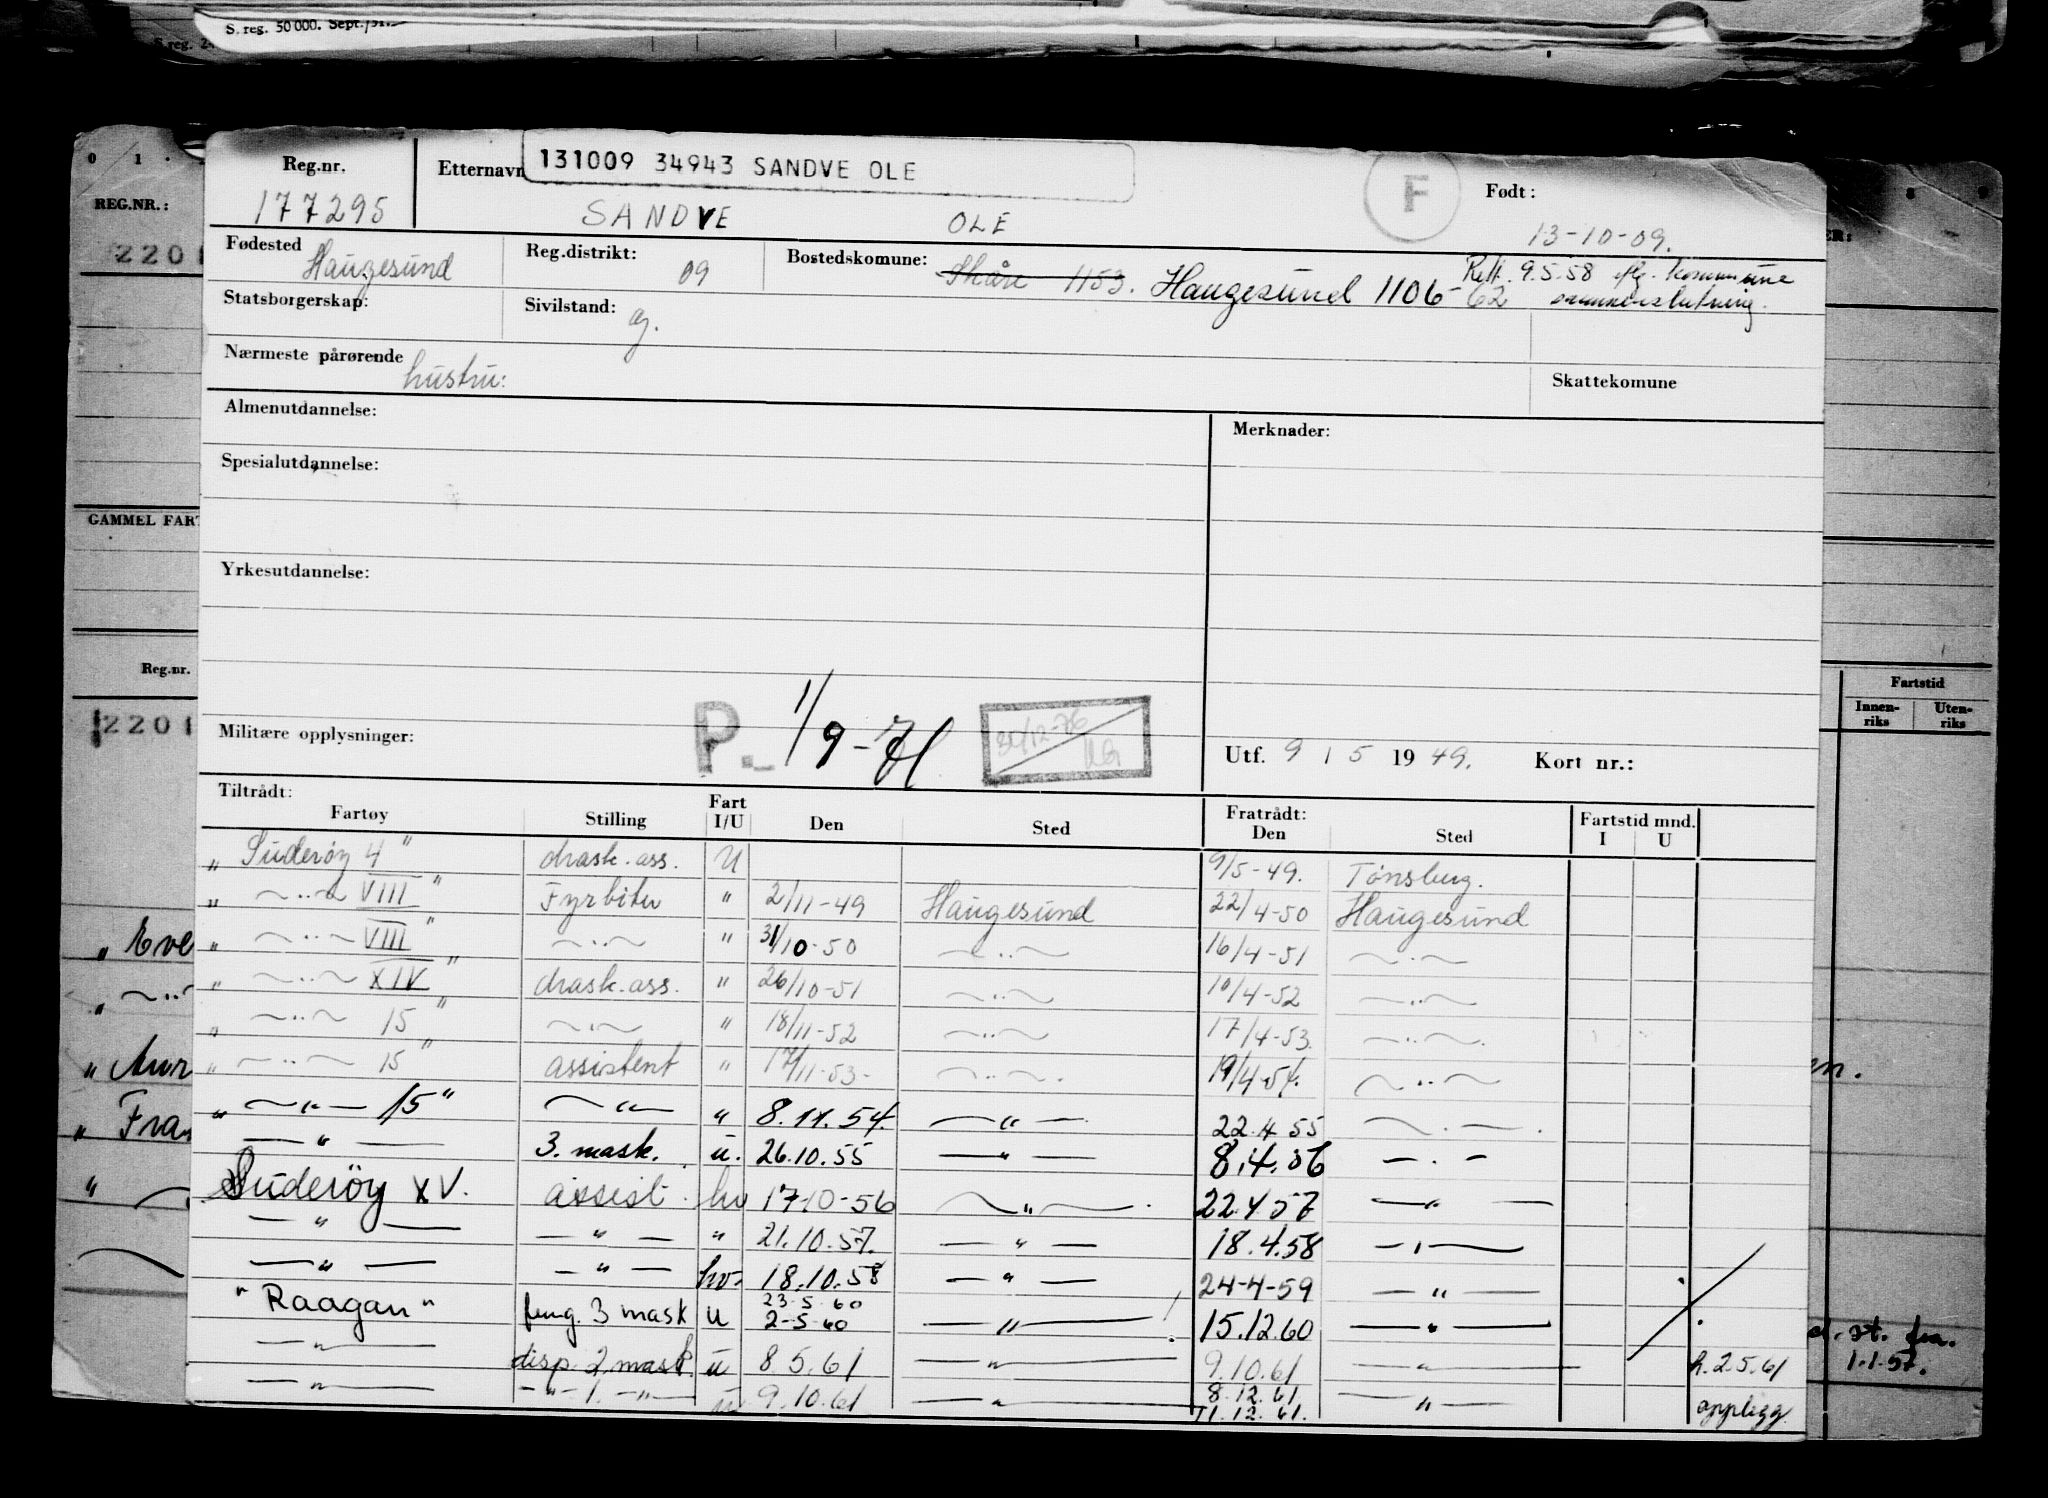 S. reg. 50 000. Sept./51.
S. reg.
0 1
REG.NR.:
2201
GAMMEL FART
Reg.nr.
2201
Reg.nr. Etternavn 131009 34943 SANDVE OLE F Født:
177295 SANDVE OLE 13-10-09.
Fødested Haugesund Reg.distrikt: 09 Bostedskomune: Skåre 1153. Haugesund 1106 - 62 Rett. 9.5.58 kommune
sammenslutning.
Statsborgerskap: Sivilstand: g.
Nærmeste pårørende hustru: Skattekomune
Almenutdannelse: Merknader:
Spesialutdannelse:
Yrkesutdannelse:
Militære opplysninger: P. 1/9-71 31/12-76 Utf. 9 / 5 1949. Kort nr.:
Tiltrådt: Fartøy Stilling Fart I/U Den Sted Fratrådt: Den Sted Fartstid mnd. I U
" Suderøy 4 " mask. ass. U 9/5-49. Tønsberg.
" —"— VIII " Fyrbøter " 2/11-49 Haugesund 22/4-50 Haugesund
" —"— VIII " —"— " 31/10-50 —"— 16/4-51 —"—
" —"— XIV " mask. ass. " 26/10-51 —"— 10/4-52 —"—
" —"— 15 " —"— " 18/11-52 —"— 17/4-53. —"—
" —"— 15 " assistent " 17/11-53- —"— 19/4-54. —"—
" —"— 15 " —"— " 8.11.54. —"— 22.4.55 —"—
—"— 3. mask. u. 26.10.55 —"— 8.4.56 —"—
Suderøy XV. assist. hv 17-10-56 —"— 22.4.57 —"—
—"— —"— " 21.10.57. —"— 18.4.58 —"—
—"— —"— hv. 18.10.58 —"— 24-4-59 —"—
" Raagan " feng. 3 mask u 23-5-60
2-5-60 —"— 15.12.60 —"—
—"— disp. 2. mask. u 8 5.61 —"— 9.10.61 —"— h. 2.5.61
—"— —"— 1. —"— u 9.10.61 —"— 8.12.61
11.12.61. —"— opplegg.
Fartstid
Innen-
riks
Uten-
riks
st. fra.
1.1.57.